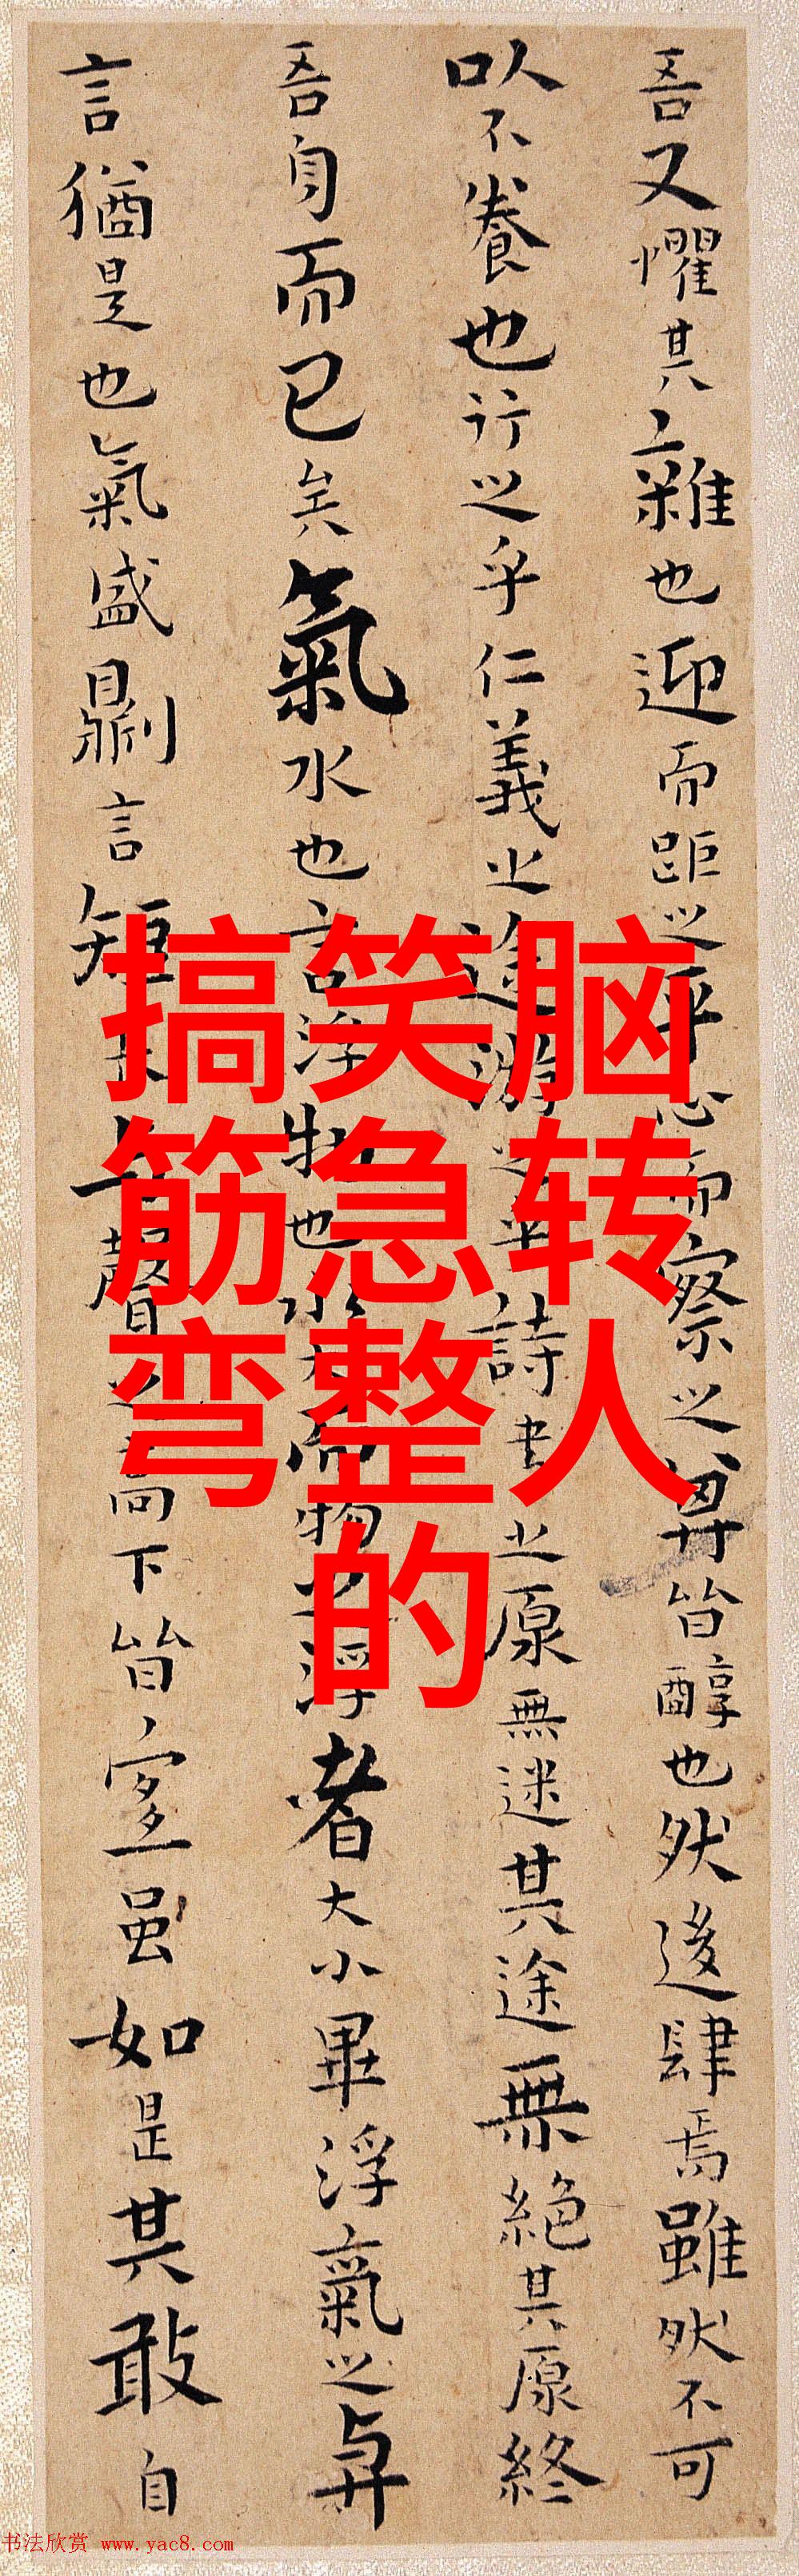 吾又懼其雜也迎而距之平心而察之其皆醇也然後肆焉雖然不可
以不養也行之乎仁義之途游之乎詩書之原無迷其途無絕其原終
吾身而已矣氣水也言浮物也水大而物之浮者大小畢浮氣之與
言猶是也氣盛則言短長与聲之高下皆宜虽如是其敢自
搞笑脑
筋急转
弯整人
的
书法欣赏 www.yac8.com